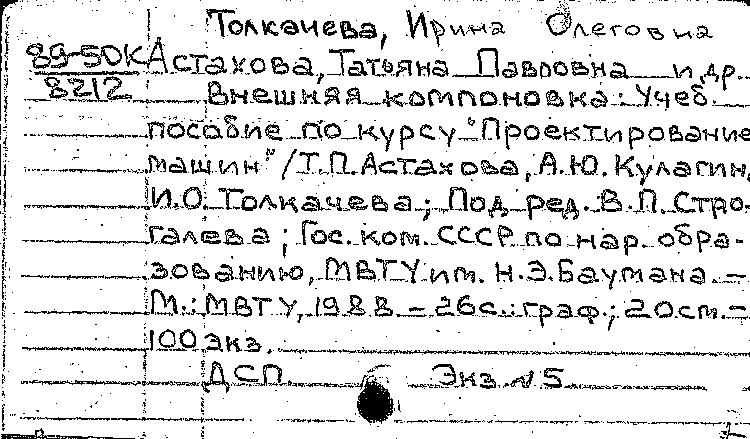 Толкачева, Ирина Олеговна
89-50К Астахова, Татьяна Павловна и др.
8212 Внешняя компоновка: Учеб.
пособие по курсу "Проектирование
машин" / Т.П. Астахова, А.Ю. Кулагин,
И.О. Толкачева; Под ред. В.П. Стро-
галева; Гос. ком. СССР по нар. обра-
зованию, МВТУ им. Н.Э. Баумана. –
М.: МВТУ, 1988 – 26с.: граф.; 20см. –
100 экз.
ДСП. Экз. N 5